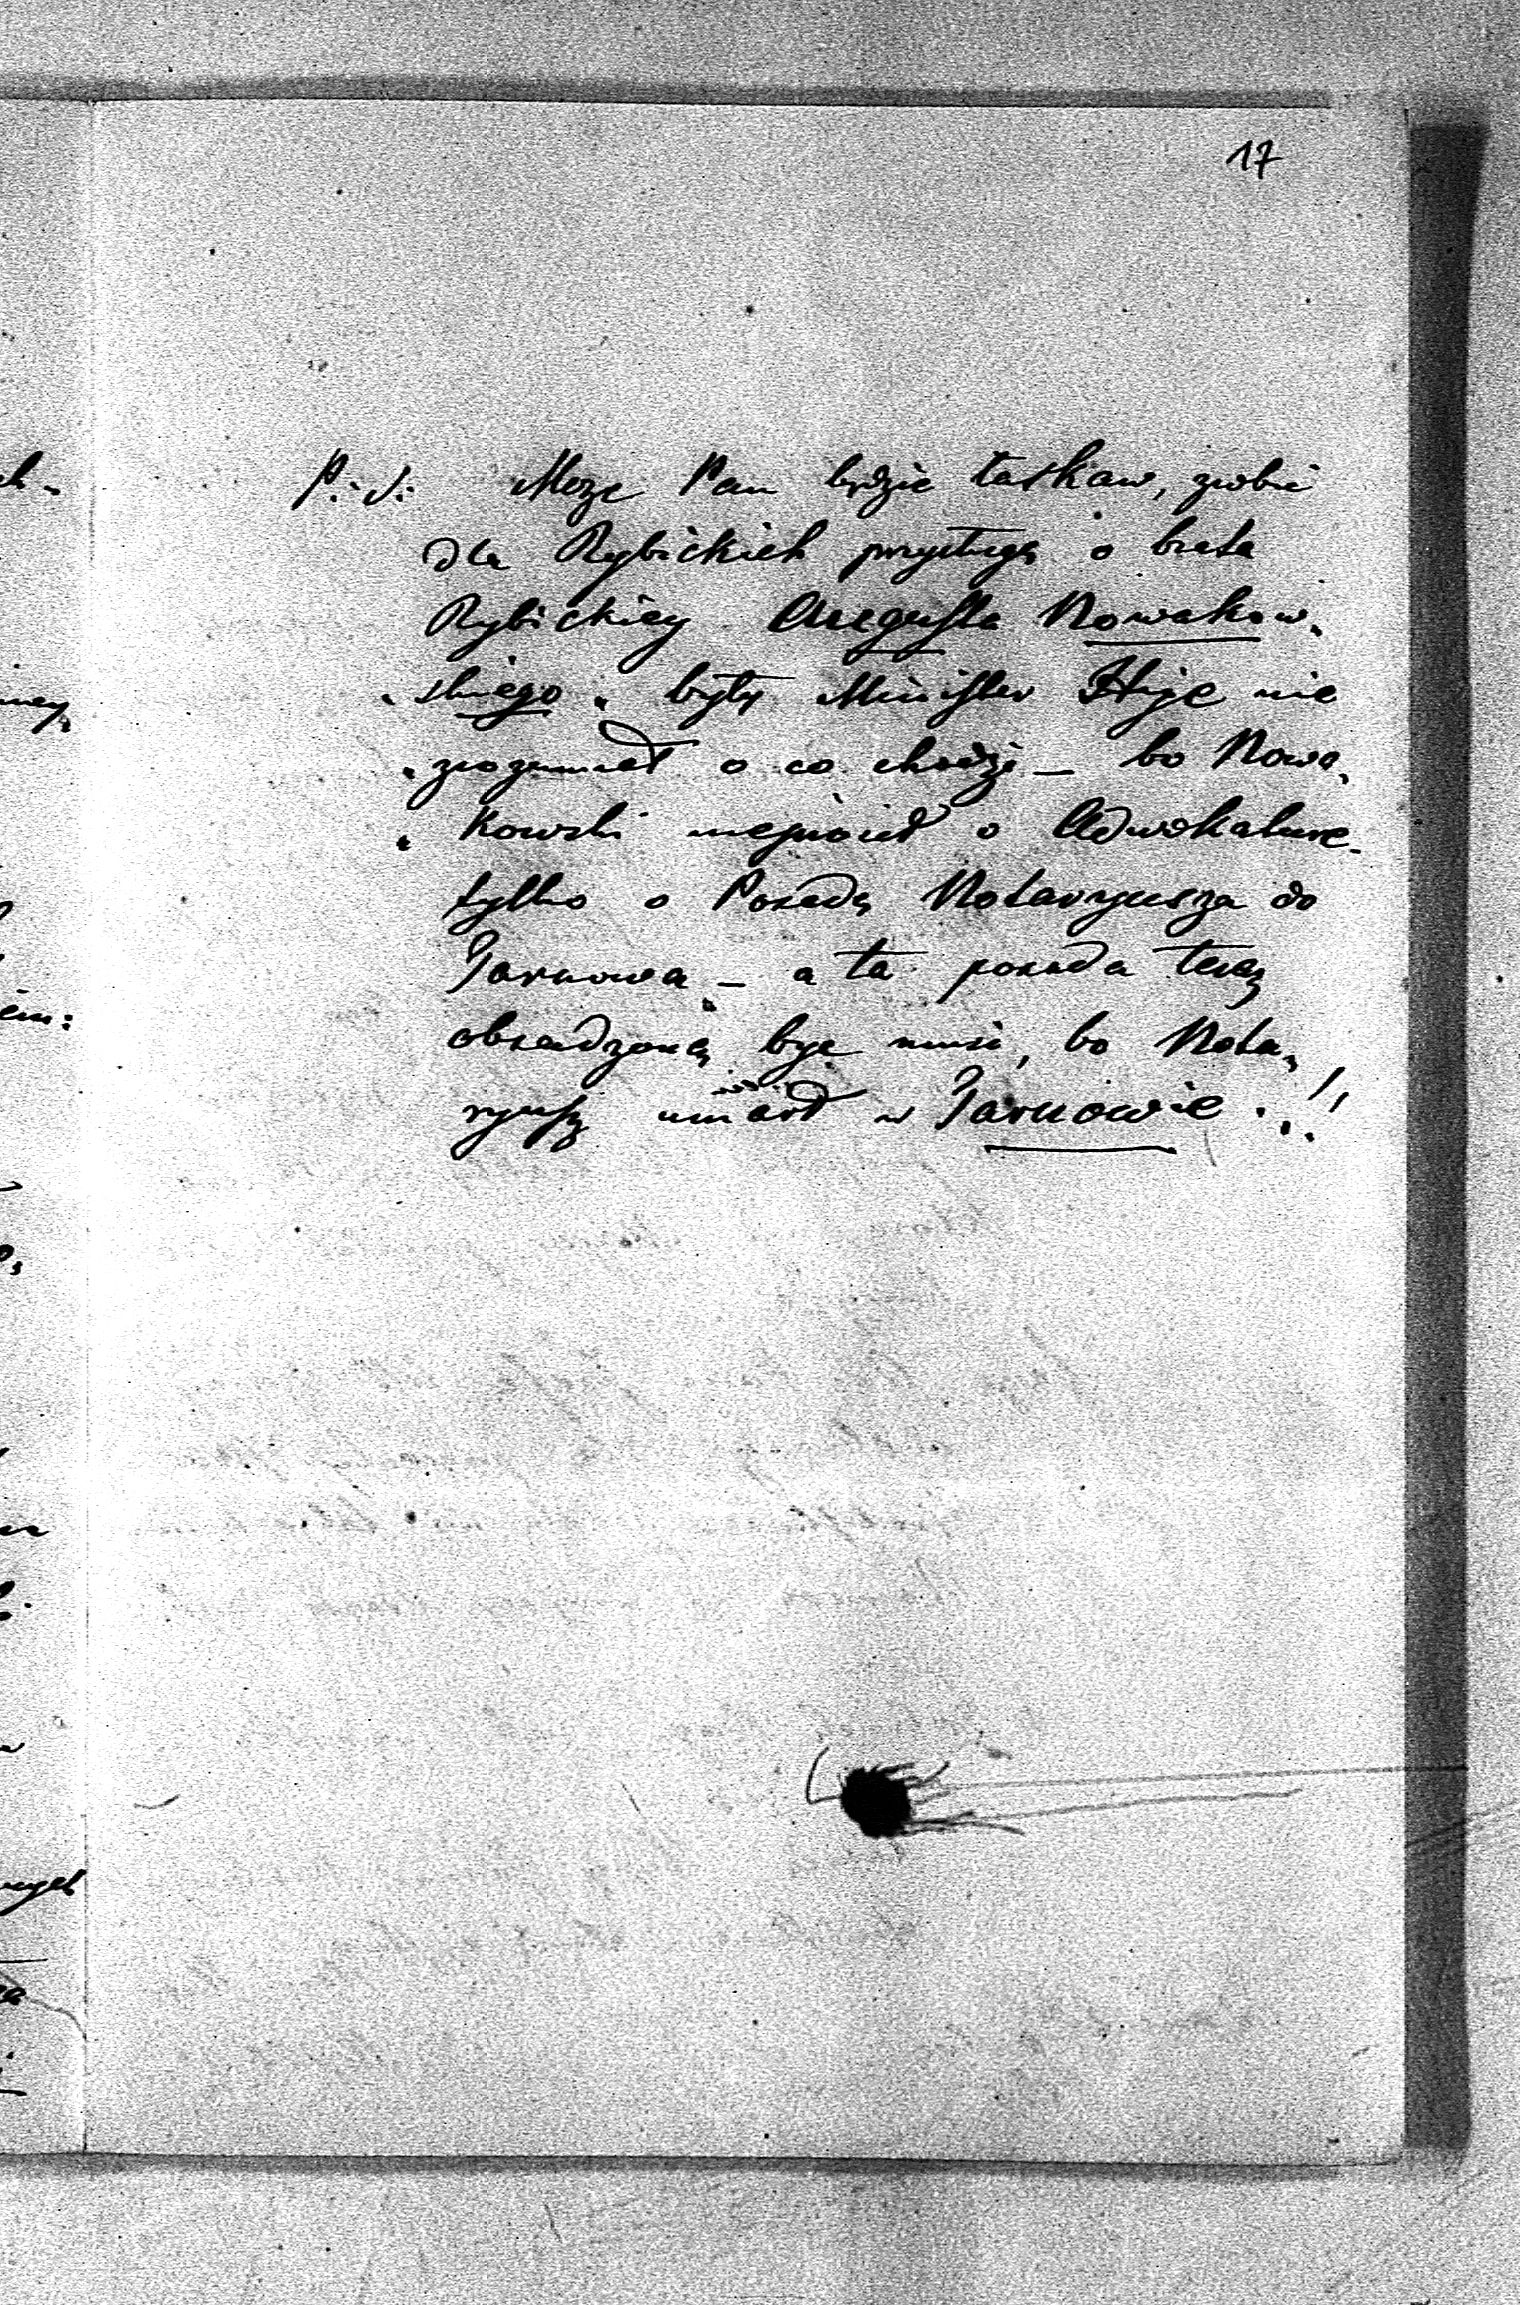 17
P.S. Moze Pan będzie łaskaw, zrobić
dla Rybickich przysługę o brata
Rybickiey Augusta Nowakow-
skiego. były Minister Hye nie
zrozumiał o co chodzi – bo Nowa-
kowski nieprosił o Adwokaturę
tylko o Posadę Notaryusza do
Tarnowa – a ta posada teraz
obsadzoną być musi, bo Nota-
ryusz umarł w Tarnowie . !!